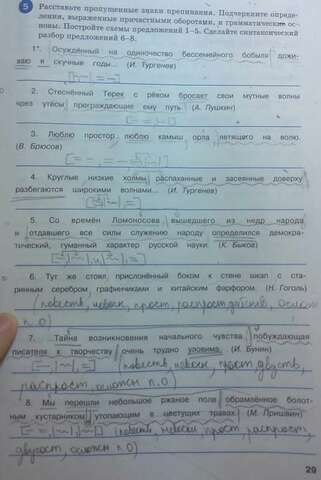 5 Расставьте пропущенные знаки препинания. Подчеркните опреде-
ления, выраженные причастными оборотами, и грамматические ос-
новы. Постройте схемы предложений 1–5. Сделайте синтаксический
разбор предложений 6–8.
1*. Осуждённый на одиночество бессемейного бобыля дожи-
ваю я скучные годы... (И. Тургенев)
2. Стеснённый Терек с рёвом бросает свои мутные волны
чрез утёсы преграждающие ему путь. (А. Пушкин)
3. Люблю простор, люблю камыш, орла летящего на волю.
(В. Брюсов)
4. Круглые низкие холмы распаханные и засеянные доверху
разбегаются широкими волнами... (И. Тургенев)
5. Со времён Ломоносова, вышедшего из недр народа
и отдавшего все силы служению народу определился демокра-
тический, гуманный характер русской науки. (К. Быков)
6. Тут же стоял прислонённый боком к стене шкап с ста-
ринным серебром, графинчиками и китайским фарфором. (Н. Гоголь)
(повеств, невоск, прост,
п. О)
7. Тайна возникновения начального чувства, побуждающая
писателя к творчеству, очень трудно уловима. (И. Бунин)
(повеств, невоск, прост, двусост,
распрост, осложн п. О)
8. Мы перешли небольшое ржаное поле обрамлённое болот-
ным кустарником утопающим в цветущих травах. (М. Пришвин)
(повеств, невоскл, прост, распрост,
двусост, осложн п. О)
29